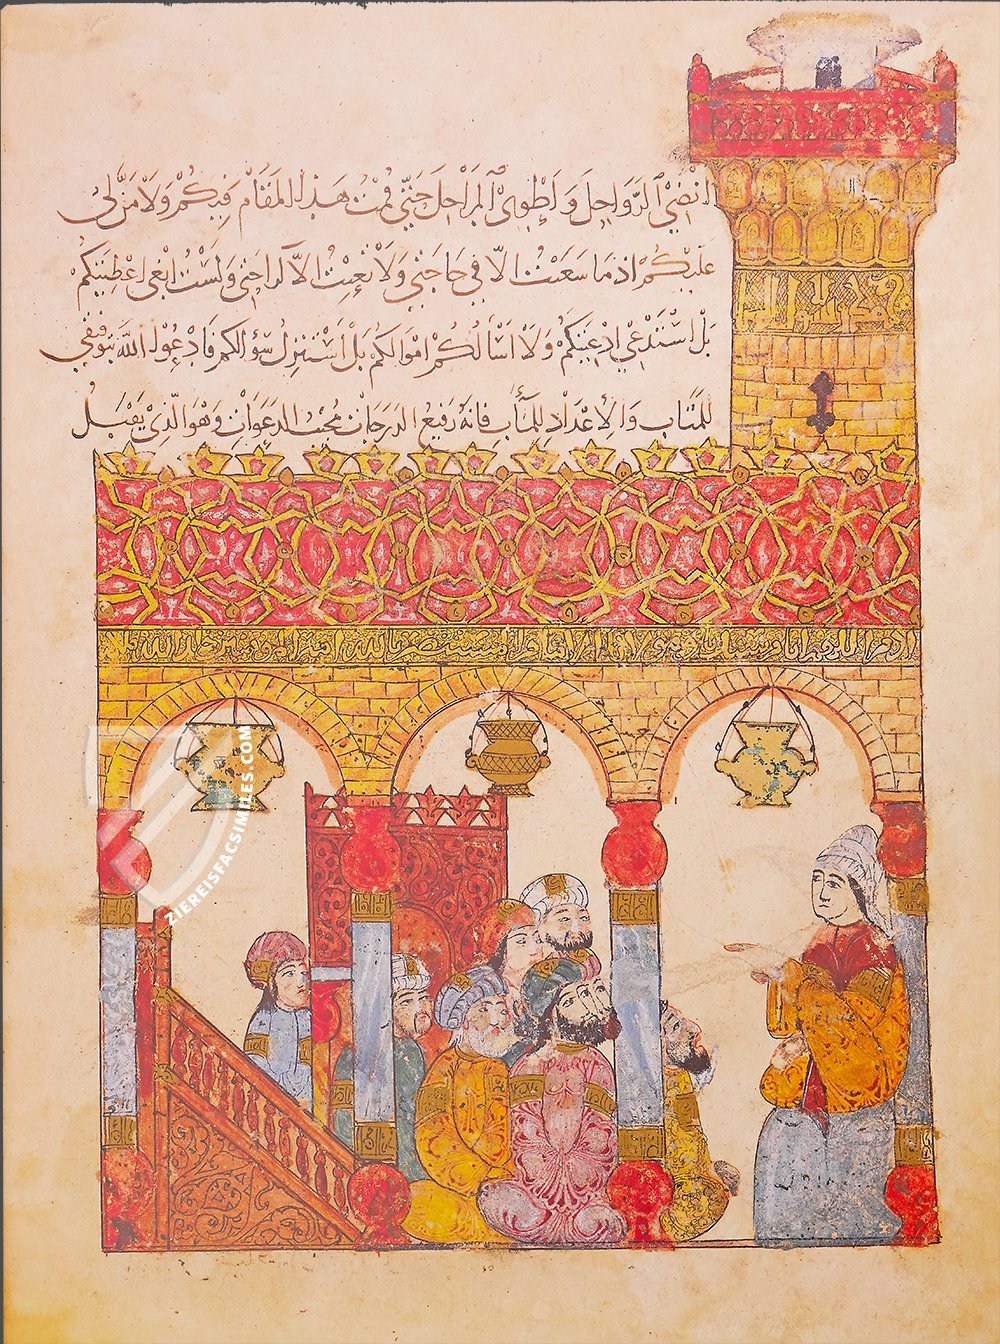 انضي الرواحل واطوي المراحل حتي قمت هذا المقام فيكم ولا من لي
عليكم اذ ما سعيت الا في حاجتي ولا تعبت الا لراحتي ولست ابغي اعطيتكم
بل استدعي ادعيتكم ولا اسألكم اموالكم بل استنزل سؤالكم فادعوا الله بتوفيقي
للمتاب والاعداد للمآب فانه رفيع الدرجات مجيب الدعوات وهو الذي يقبل
محمد رسول الله
المستنصر بالله امير
ZIEREISFACSIMILES.COM